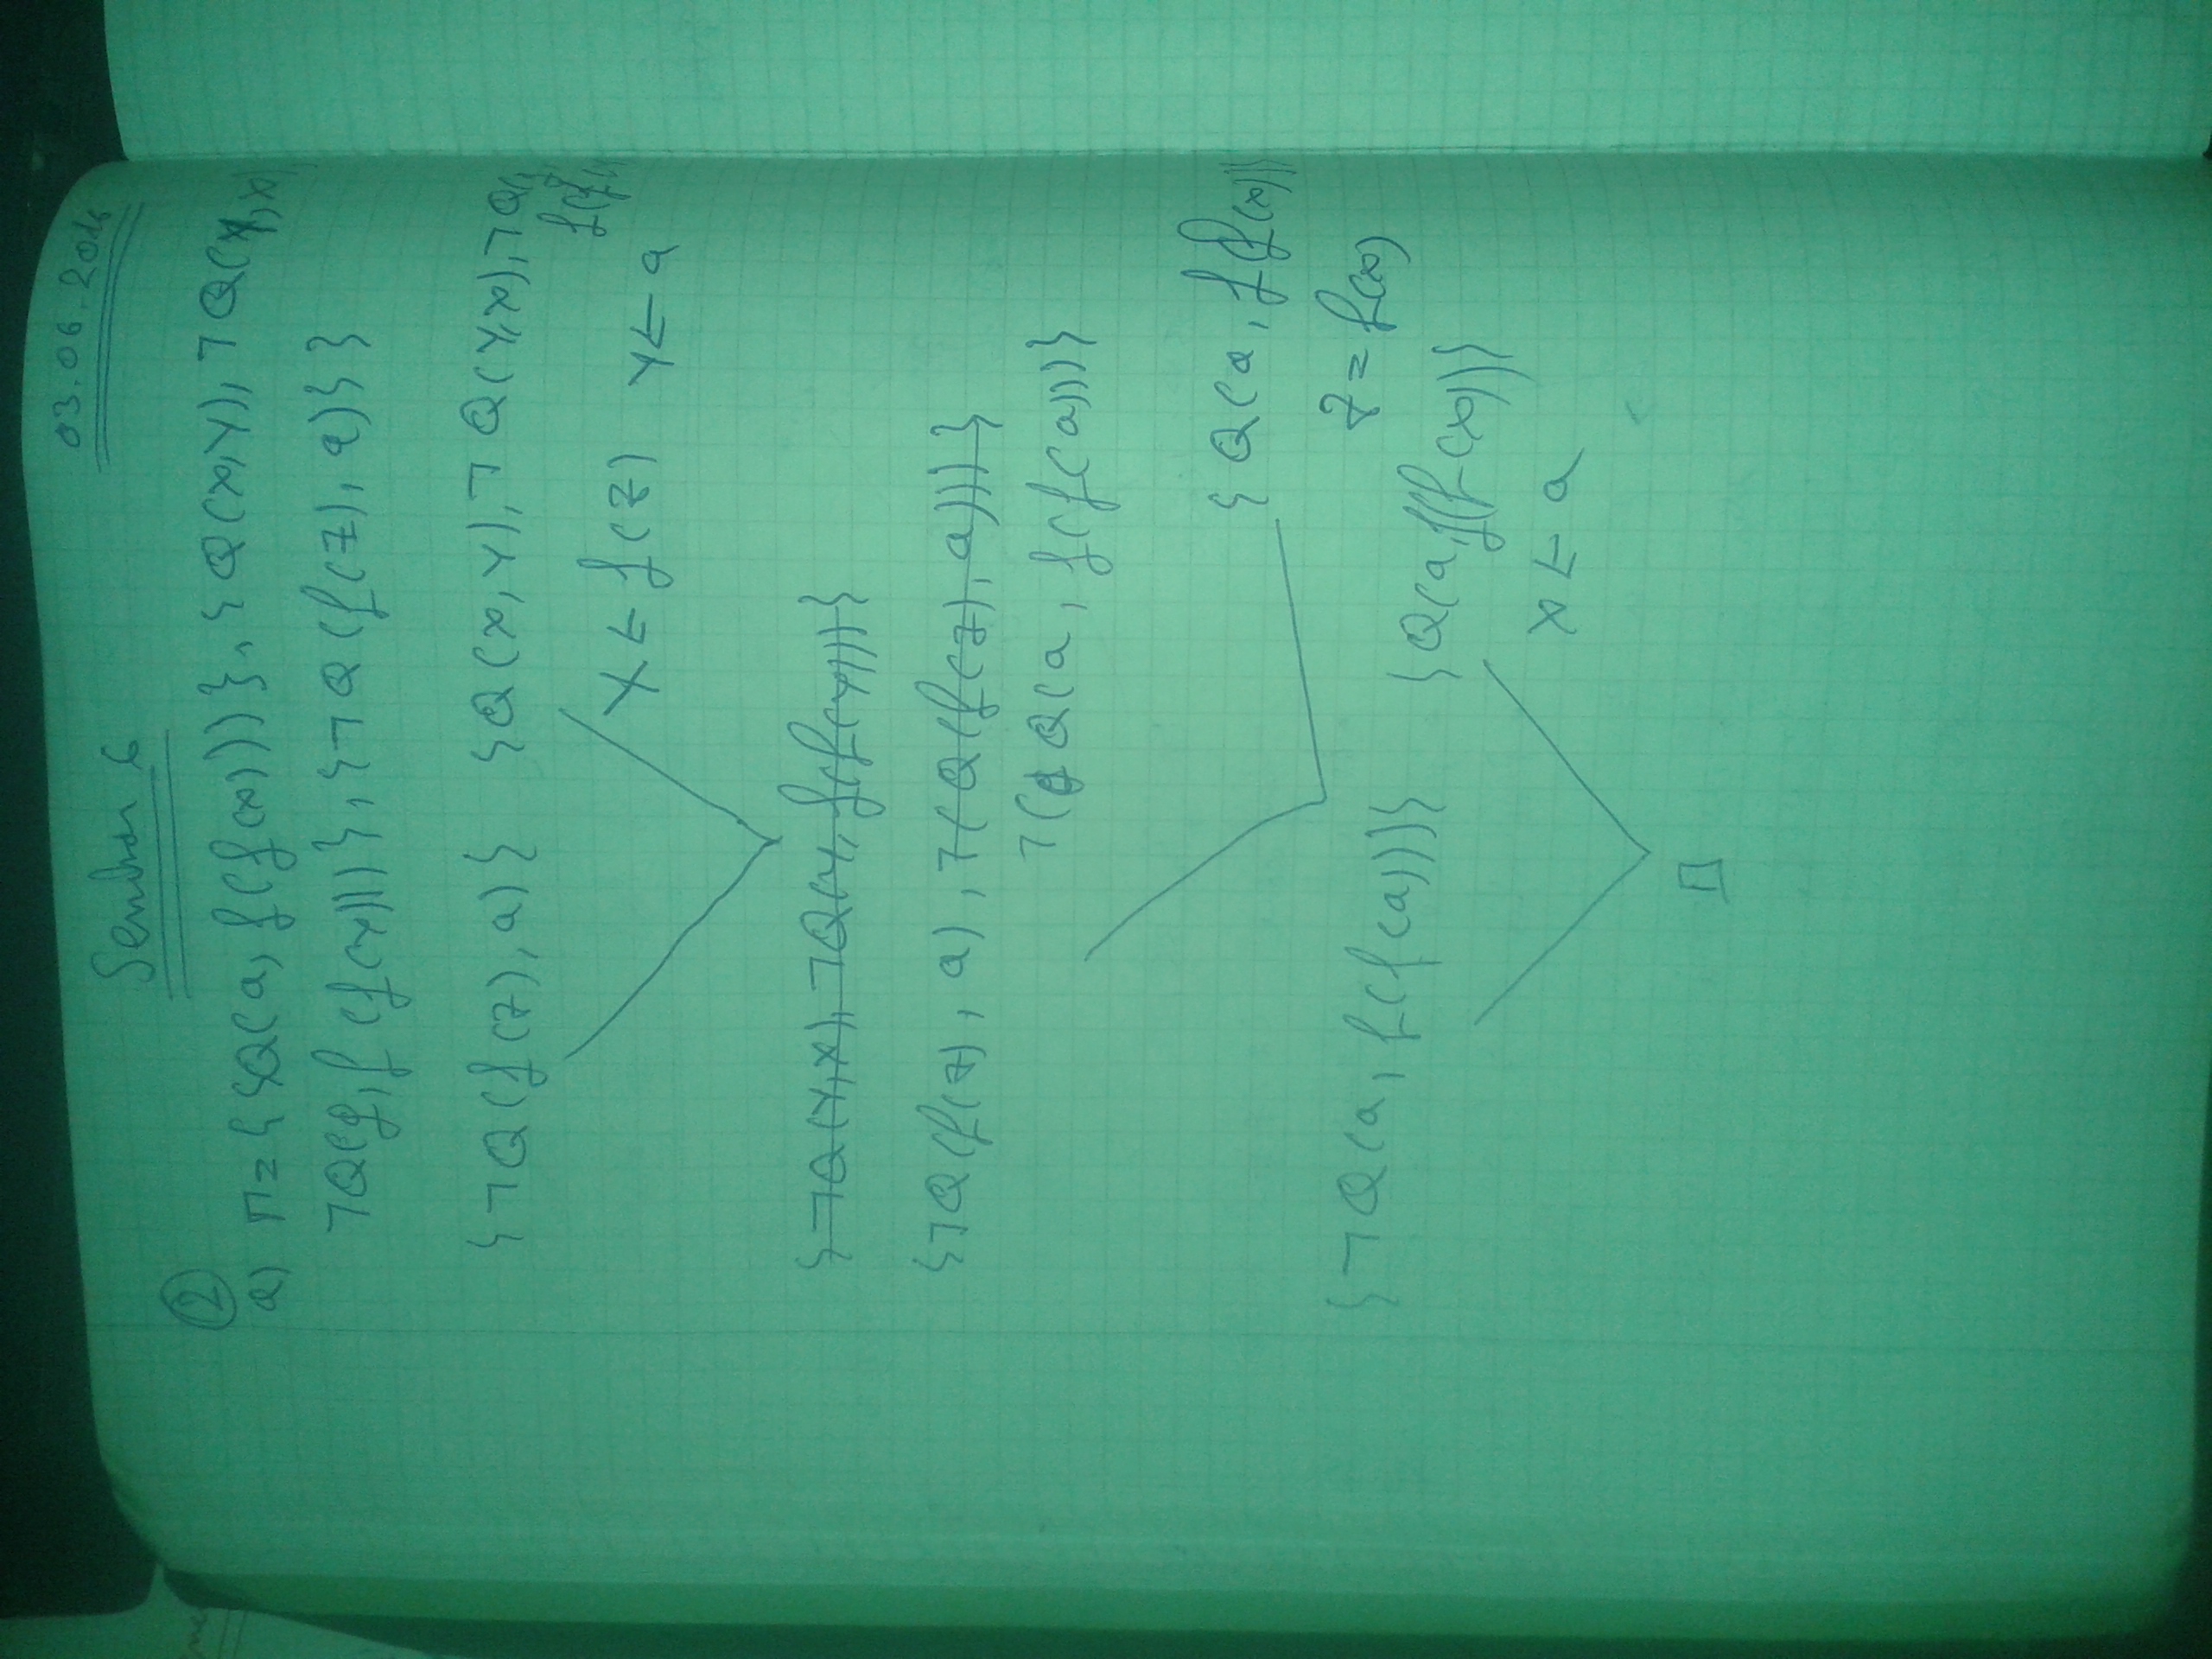 03.06.2016
Seminar 6
②
a) Γ = { {Q(a, f(f(x)))}, {Q(x,y), ¬Q(y,x)
¬Q(y, f(f(y)))}, {¬Q(f(z), a)} }
{¬Q(f(z), a)} {Q(x,y), ¬Q(y,x), ¬Q(
f(f(
x ← f(z) y ← a
{¬Q(y,x), ¬Q(y, f(f(y)))}
{¬Q(f(z), a), ¬(Q(f(z), a)))}
¬( Q(a, f(f(a)))}
{Q(a, f(f(x)))
z = f(x)
{¬Q(a, f(f(a)))}
{Q(a, f(f(x)))}
x ← a
□